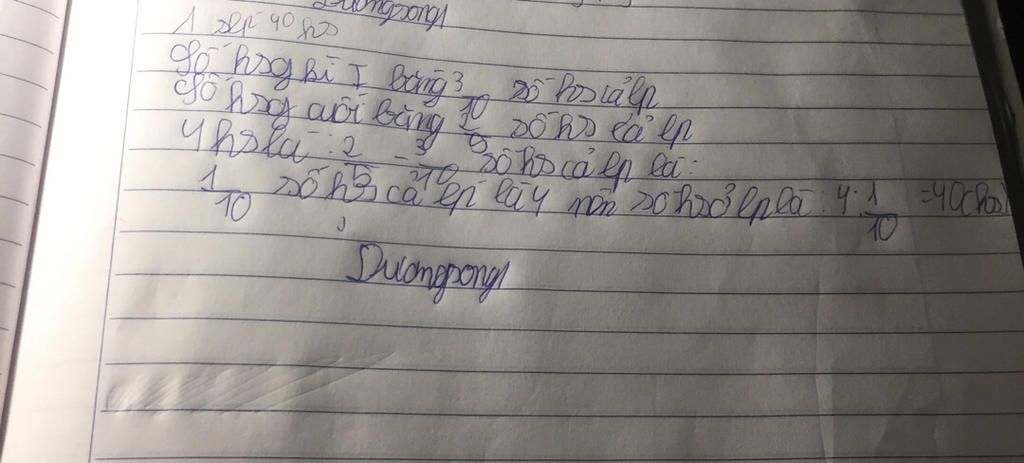 Duongpong1
1 xếp 40 hs
Số hsg kì I bằng 3/10 số hs cả lp
Số hsg cuối bằng 2/5 số hs cả lp
4 hs là : 2/5 - 3/10 số hs cả lp là :
1/10 số hs cả lp là 4 nên số hs ở lp là : 4 : 1/10 = 40 (hs)
Duongpong1